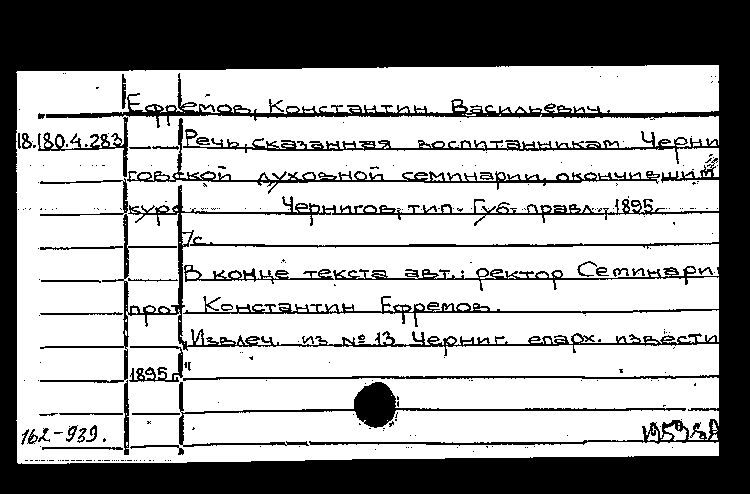 Ефремов, Константин Васильевич.
18.180.4.283 Речь, сказанная воспитанникам Черни
говской духовной семинарии, окончившим
курс. Чернигов, тип. Губ. правл., 1895.
7с.
В конце текста авт.: ректор Семинарии
прот. Константин Ефремов.
„Извлеч. из №13 Черниг. епарх. известий
1895г."
162-939.